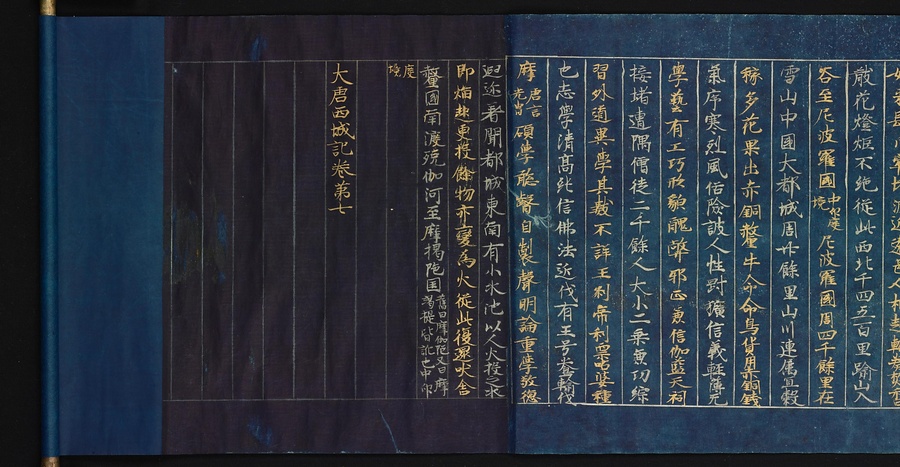 散花燈炬不絕從此西北千四五百里踰山入
谷至尼波羅國中印度境尼波羅國周四千餘里在
雪山中國大都城周廿餘里山川連属宜穀
稼多花果出赤銅犛牛命命鳥貨用赤銅錢
氣序寒烈風俗險詖人性剛獷信義輕薄无
學藝有工巧形貌醜弊邪正兼信伽藍天祠
接堵連隅僧徒二千餘人大小二乗兼功綜
習外道異學其數不詳王剎帝利栗呫婆種
也志學清髙純信佛法近代有王号鴦輸伐
摩唐言光冑碩學聡叡自製聲明論重學敬德
遐迩著聞都城東南有小水池以人火投之水
即焰起更投餘物亦變為火從此復還吠舎
釐國南渡殑伽河至摩揭陀国舊曰摩伽陀又曰摩竭提皆訛也中印度境
大唐西域記卷第七